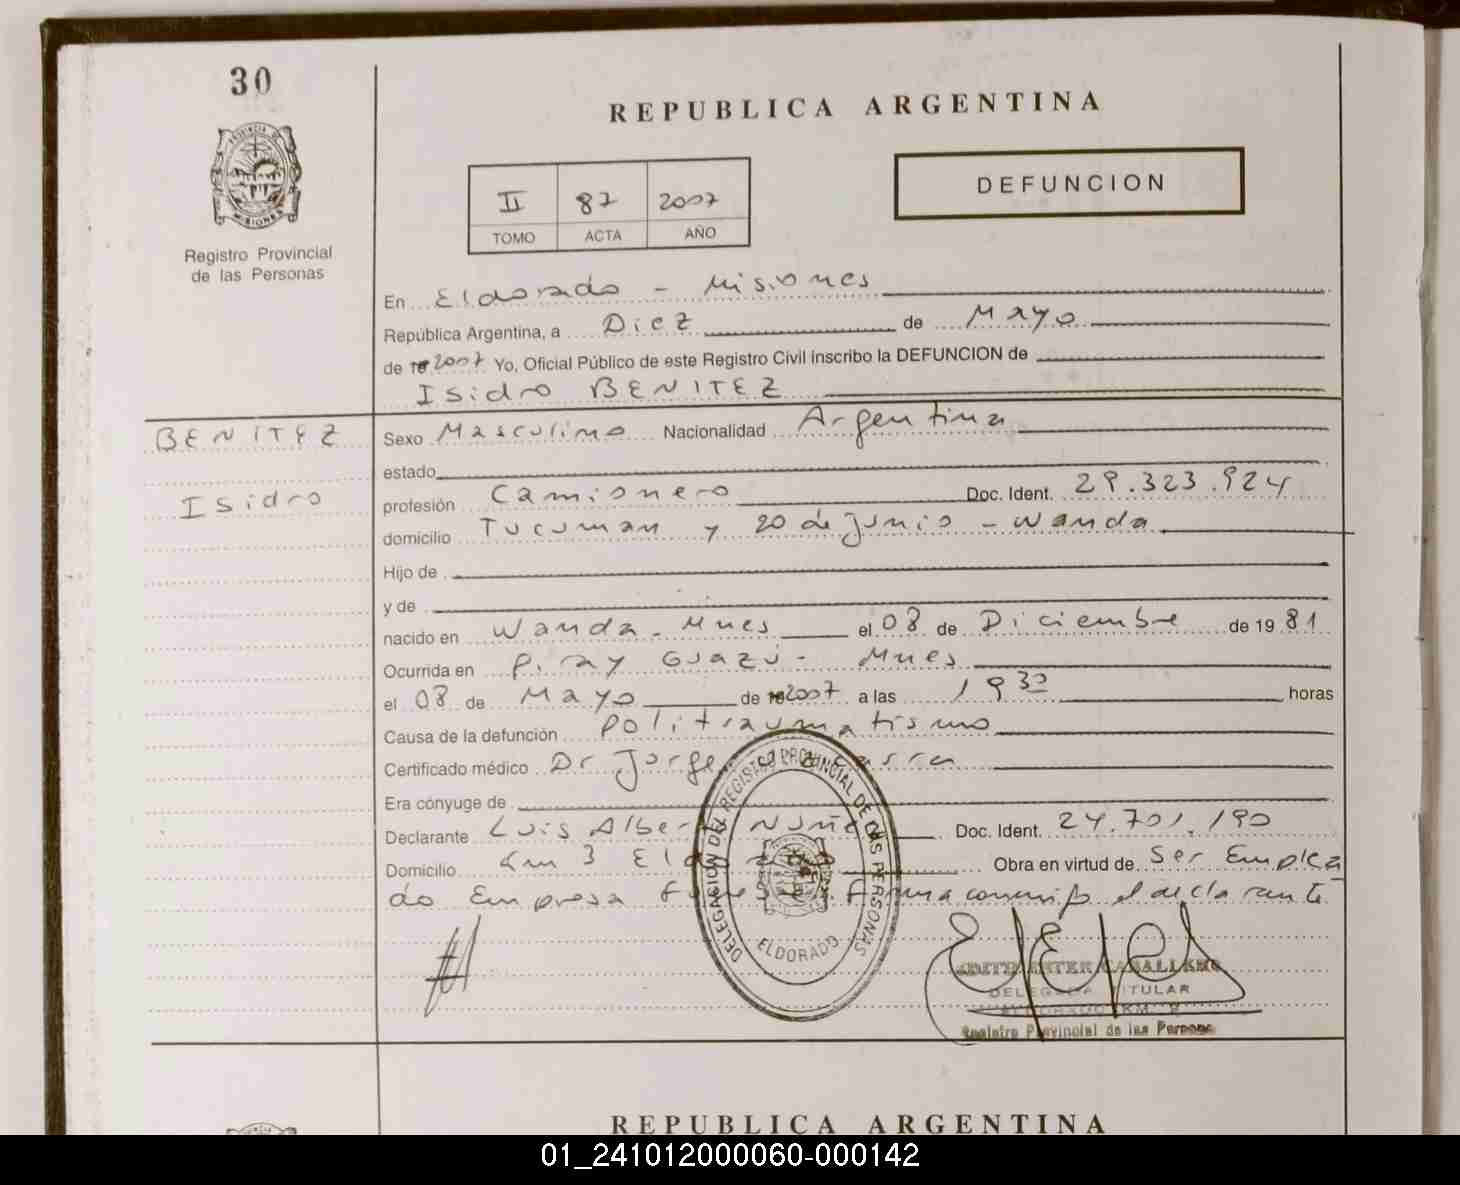 30
REPUBLICA ARGENTINA
PROVINCIA DE
MISIONES
Registro Provincial
de las Personas
II 87 2007
TOMO ACTA AÑO
DEFUNCION
En Eldorado - Misiones
República Argentina, a Diez de Mayo
de 2007 Yo, Oficial Público de este Registro Civil inscribo la DEFUNCION de
Isidro BENITEZ
BENITEZ
Isidro
Sexo Masculino Nacionalidad Argentina
estado
profesión Camionero Doc. Ident. 29.323.924
domicilio Tucuman y 20 de Junio - Wanda
Hijo de
y de
nacido en Wanda - Mnes el 08 de Diciembre de 1981
Ocurrida en Piray Guazú - Mnes
el 08 de Mayo de 2007 a las 19 30 horas
Causa de la defunción Politraumatismo
Certificado médico Dr Jorge
Era cónyuge de
Declarante Luis Alberto Nuñez Doc. Ident. 24.701.190
Domicilio Km 3 Eldorado Obra en virtud de Ser Emplea
do Empresa Firma conmigo el declarante
DELEGACION DEL REGISTRO PROVINCIAL DE LAS PERSONAS
ELDORADO
CABALLERO
DELEGADA TITULAR
ELDORADO KM.
Registro Provincial de las Personas
REPUBLICA ARGENTINA
01_241012000060-000142